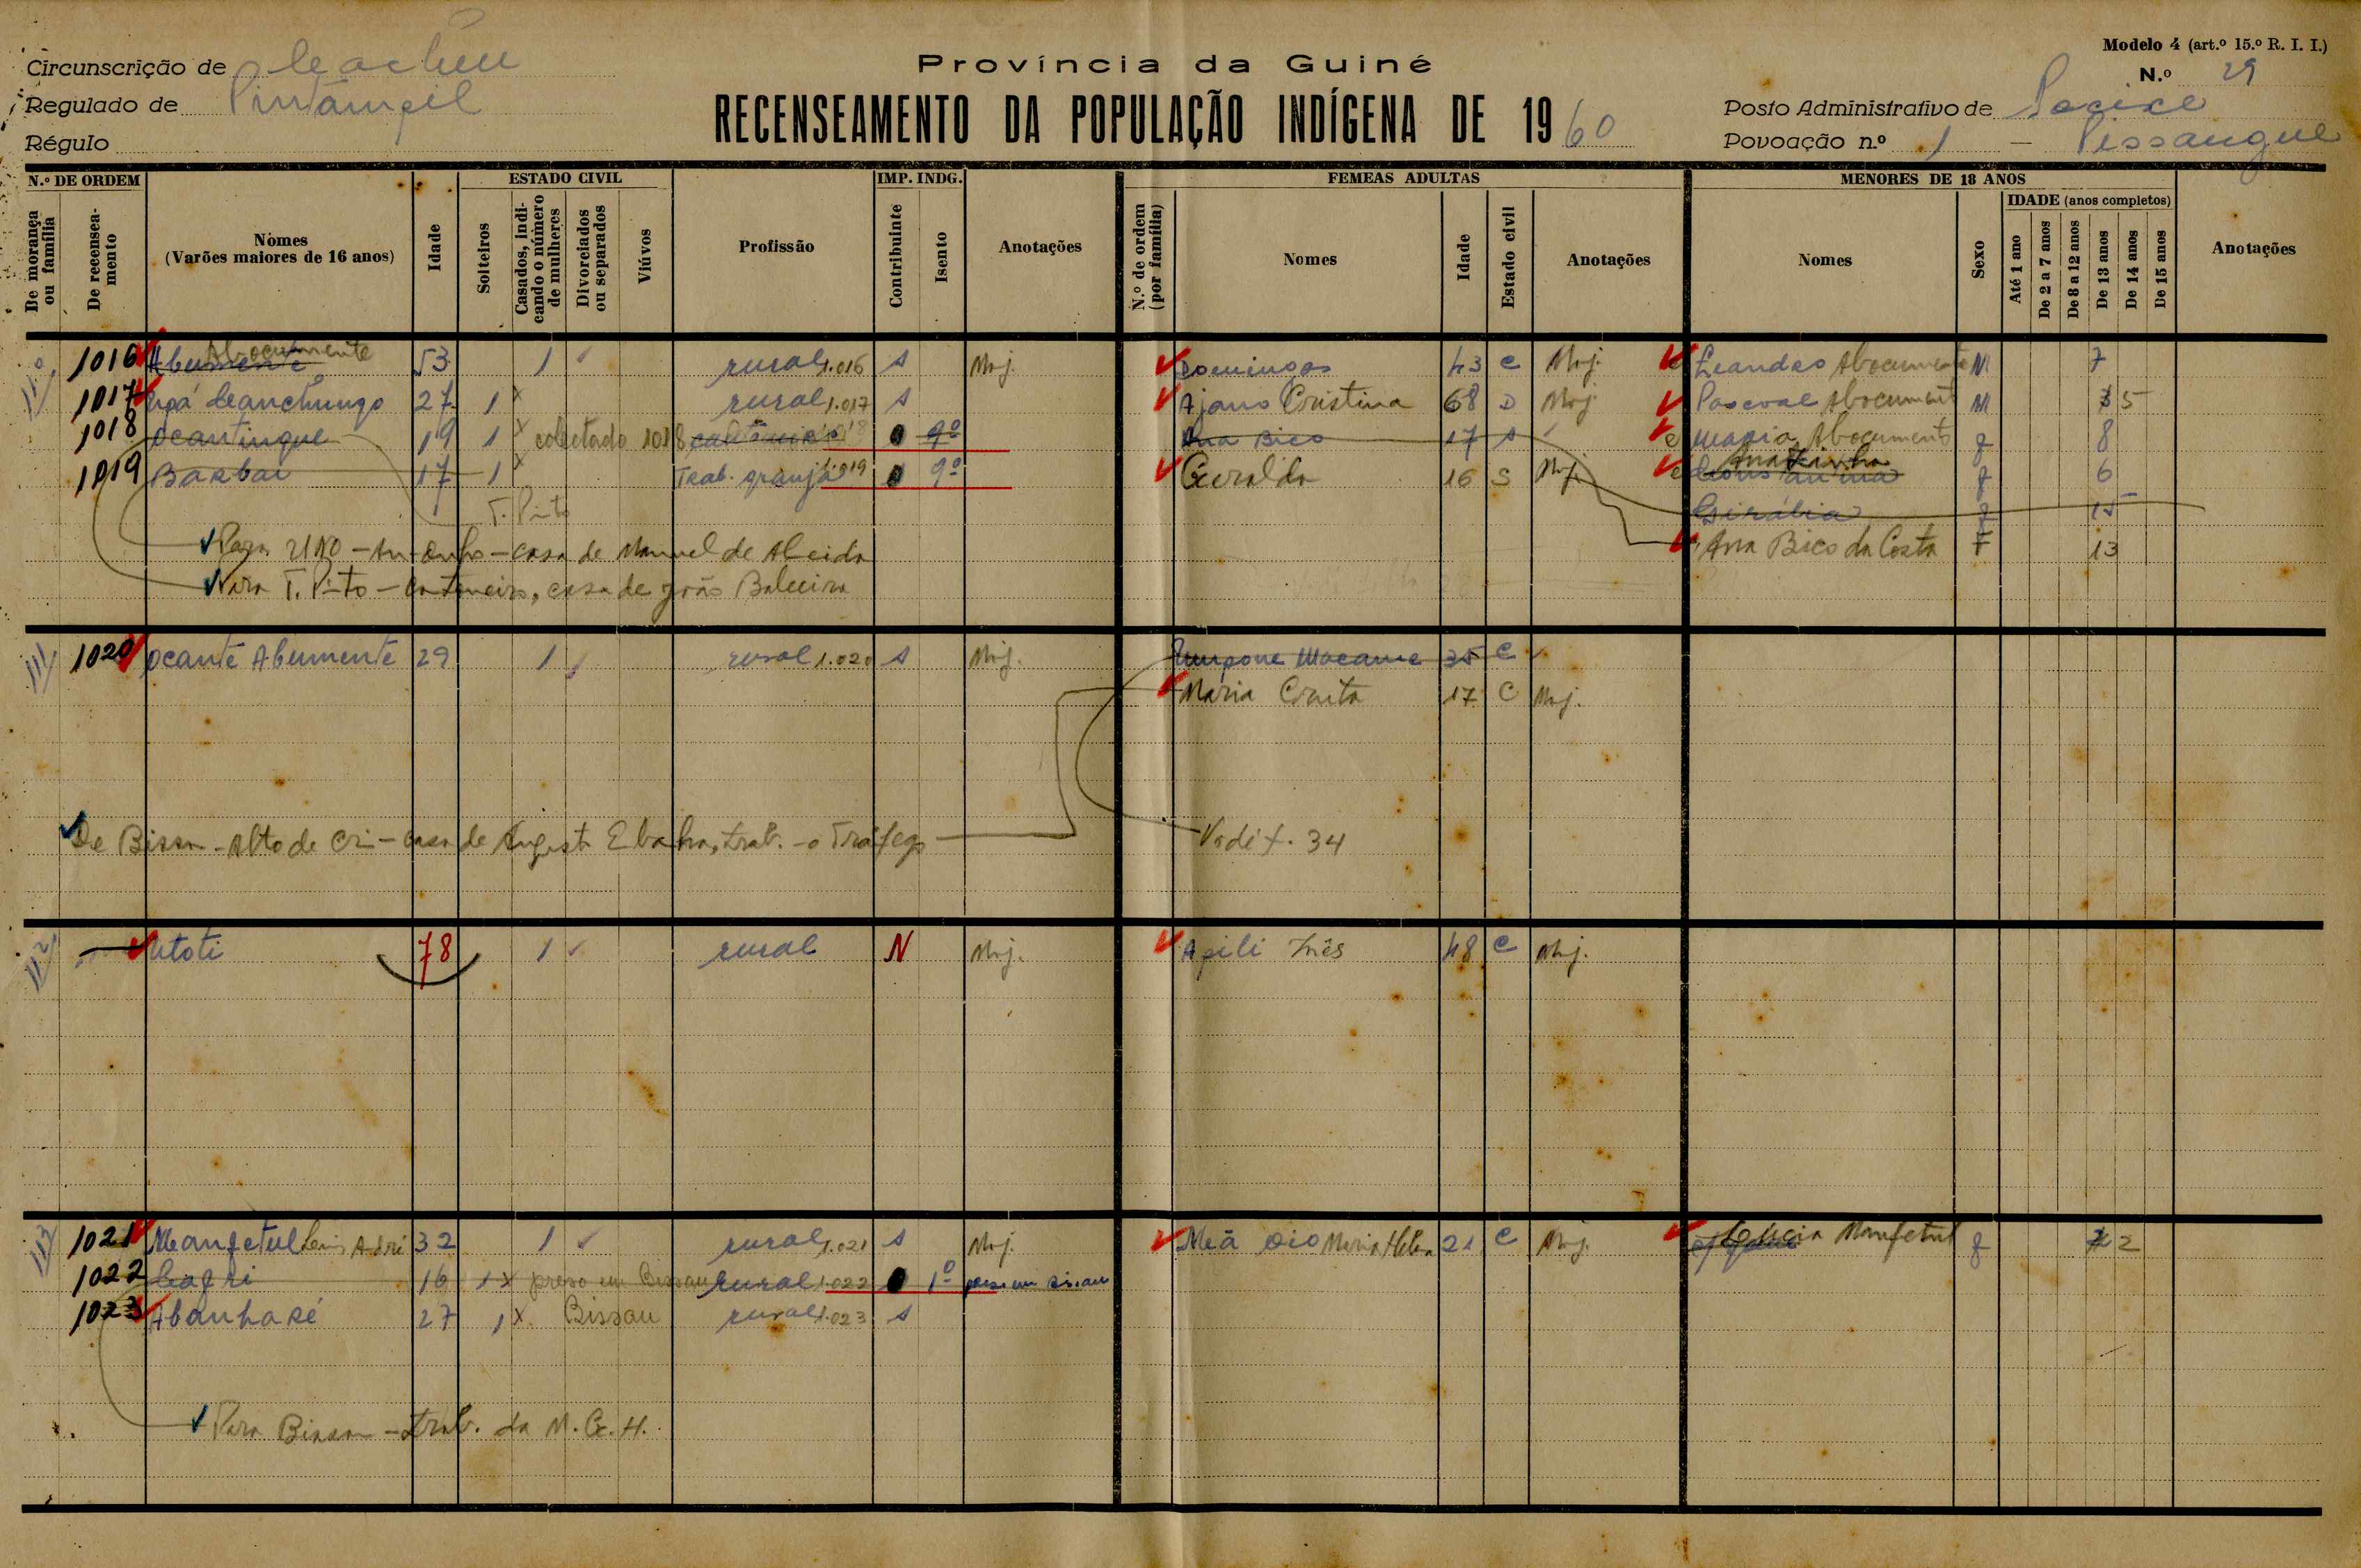 Modelo 4 (art.º 15.º R. I. I.)
Circunscrição de Cacheu
Província da Guiné
N.º 29
Regulado de Pintampil
RECENSEAMENTO DA POPULAÇÃO INDÍGENA DE 1960
Posto Administrativo de
Régulo
Povoação n.º 1 – Pissangue
N.º DE ORDEM
ESTADO CIVIL
IMP. INDG.
FEMEAS ADULTAS
MENORES DE 18 ANOS
De morança ou família
De recenseamento
Nomes
(Varões maiores de 16 anos)
Idade
Solteiros
Casados, indicando o número de mulheres
Divorciados ou separados
Viúvos
Profissão
Contribuinte
Isento
Anotações
N.º de ordem (por família)
Nomes
Idade
Estado civil
Anotações
Nomes
Sexo
IDADE (anos completos)
Até 1 ano
De 2 a 7 anos
De 8 a 12 anos
De 13 anos
De 14 anos
De 15 anos
Anotações
1016 Abumente Abocumente 53 1 rural 1.016 s Manj. Domingas 43 C Manj. Leandro Abocumente M 7
1017 Canchungo 27 1 x rural 1.017 s Ajano Cristina 68 D Manj. Pascoal Abocument M 5
1018 Ocantinque 19 1 x colectado 1018 9º Ana Bico 17 s Maria Abocumento f 8
1019 Barbai 17 1 x Trab. granja 1.019 9º Geralda 16 S Manj. f 6
T. Pinto
f 15
Para - casa de Manuel de Almeida
Ana Bico da Costa F 13
Para T. Pinto - cantineiro, casa de João Baleeira
1020 Ocante Abumente 29 1 rural 1.020 s Manj. 35 C
Maria 17 C Manj.
De Bissau - Alto de Cri - casa de trab.
Vide f. 34
Utoti 78 1 rural N Manj. Apili Inês 48 C Manj.
1021 Manfetul 32 1 rural 1.021 s Manj. Meã Maria Helena 21 C Manj. Lúcia Manfetul f 2
1022 Cafri 16 1 x preso em Bissau rural 1.022 1º preso em Bissau
1023 Abanharé 27 1 x Bissau rural 1.023 s
Para Bissau - trab. da